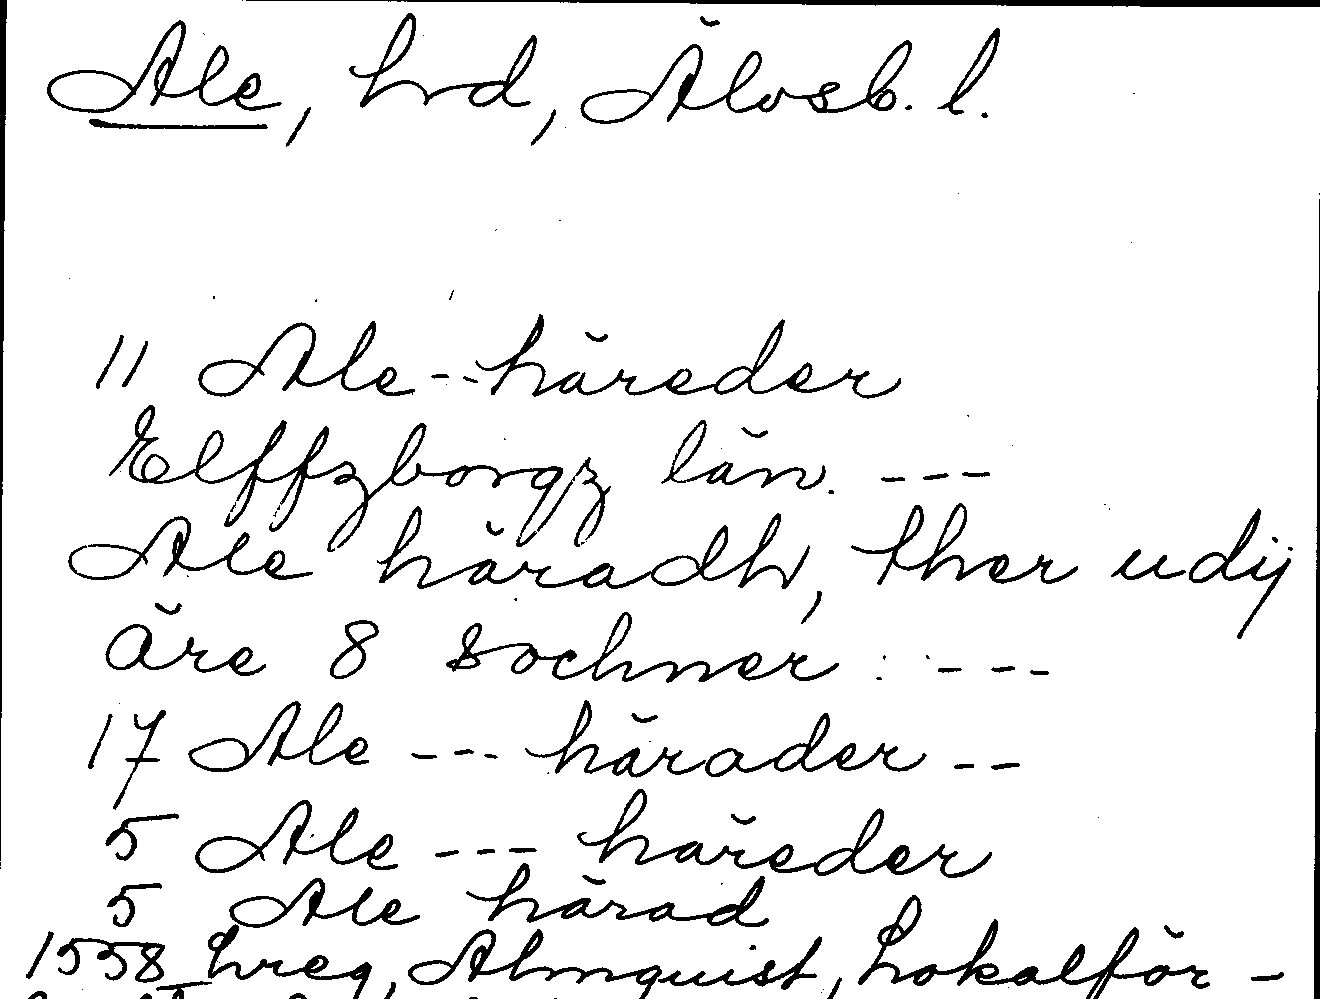 Ale, hrd, Älvsb. l.
11 Ale--häreder
Elffzborgz län. ---
Ale häradh, ther udij
äre 8 sochner. ---
17 Ale --- härader --
5 Ale --- häreder
5 Ale härad
1558 hreg, Almquist, Lokalför-